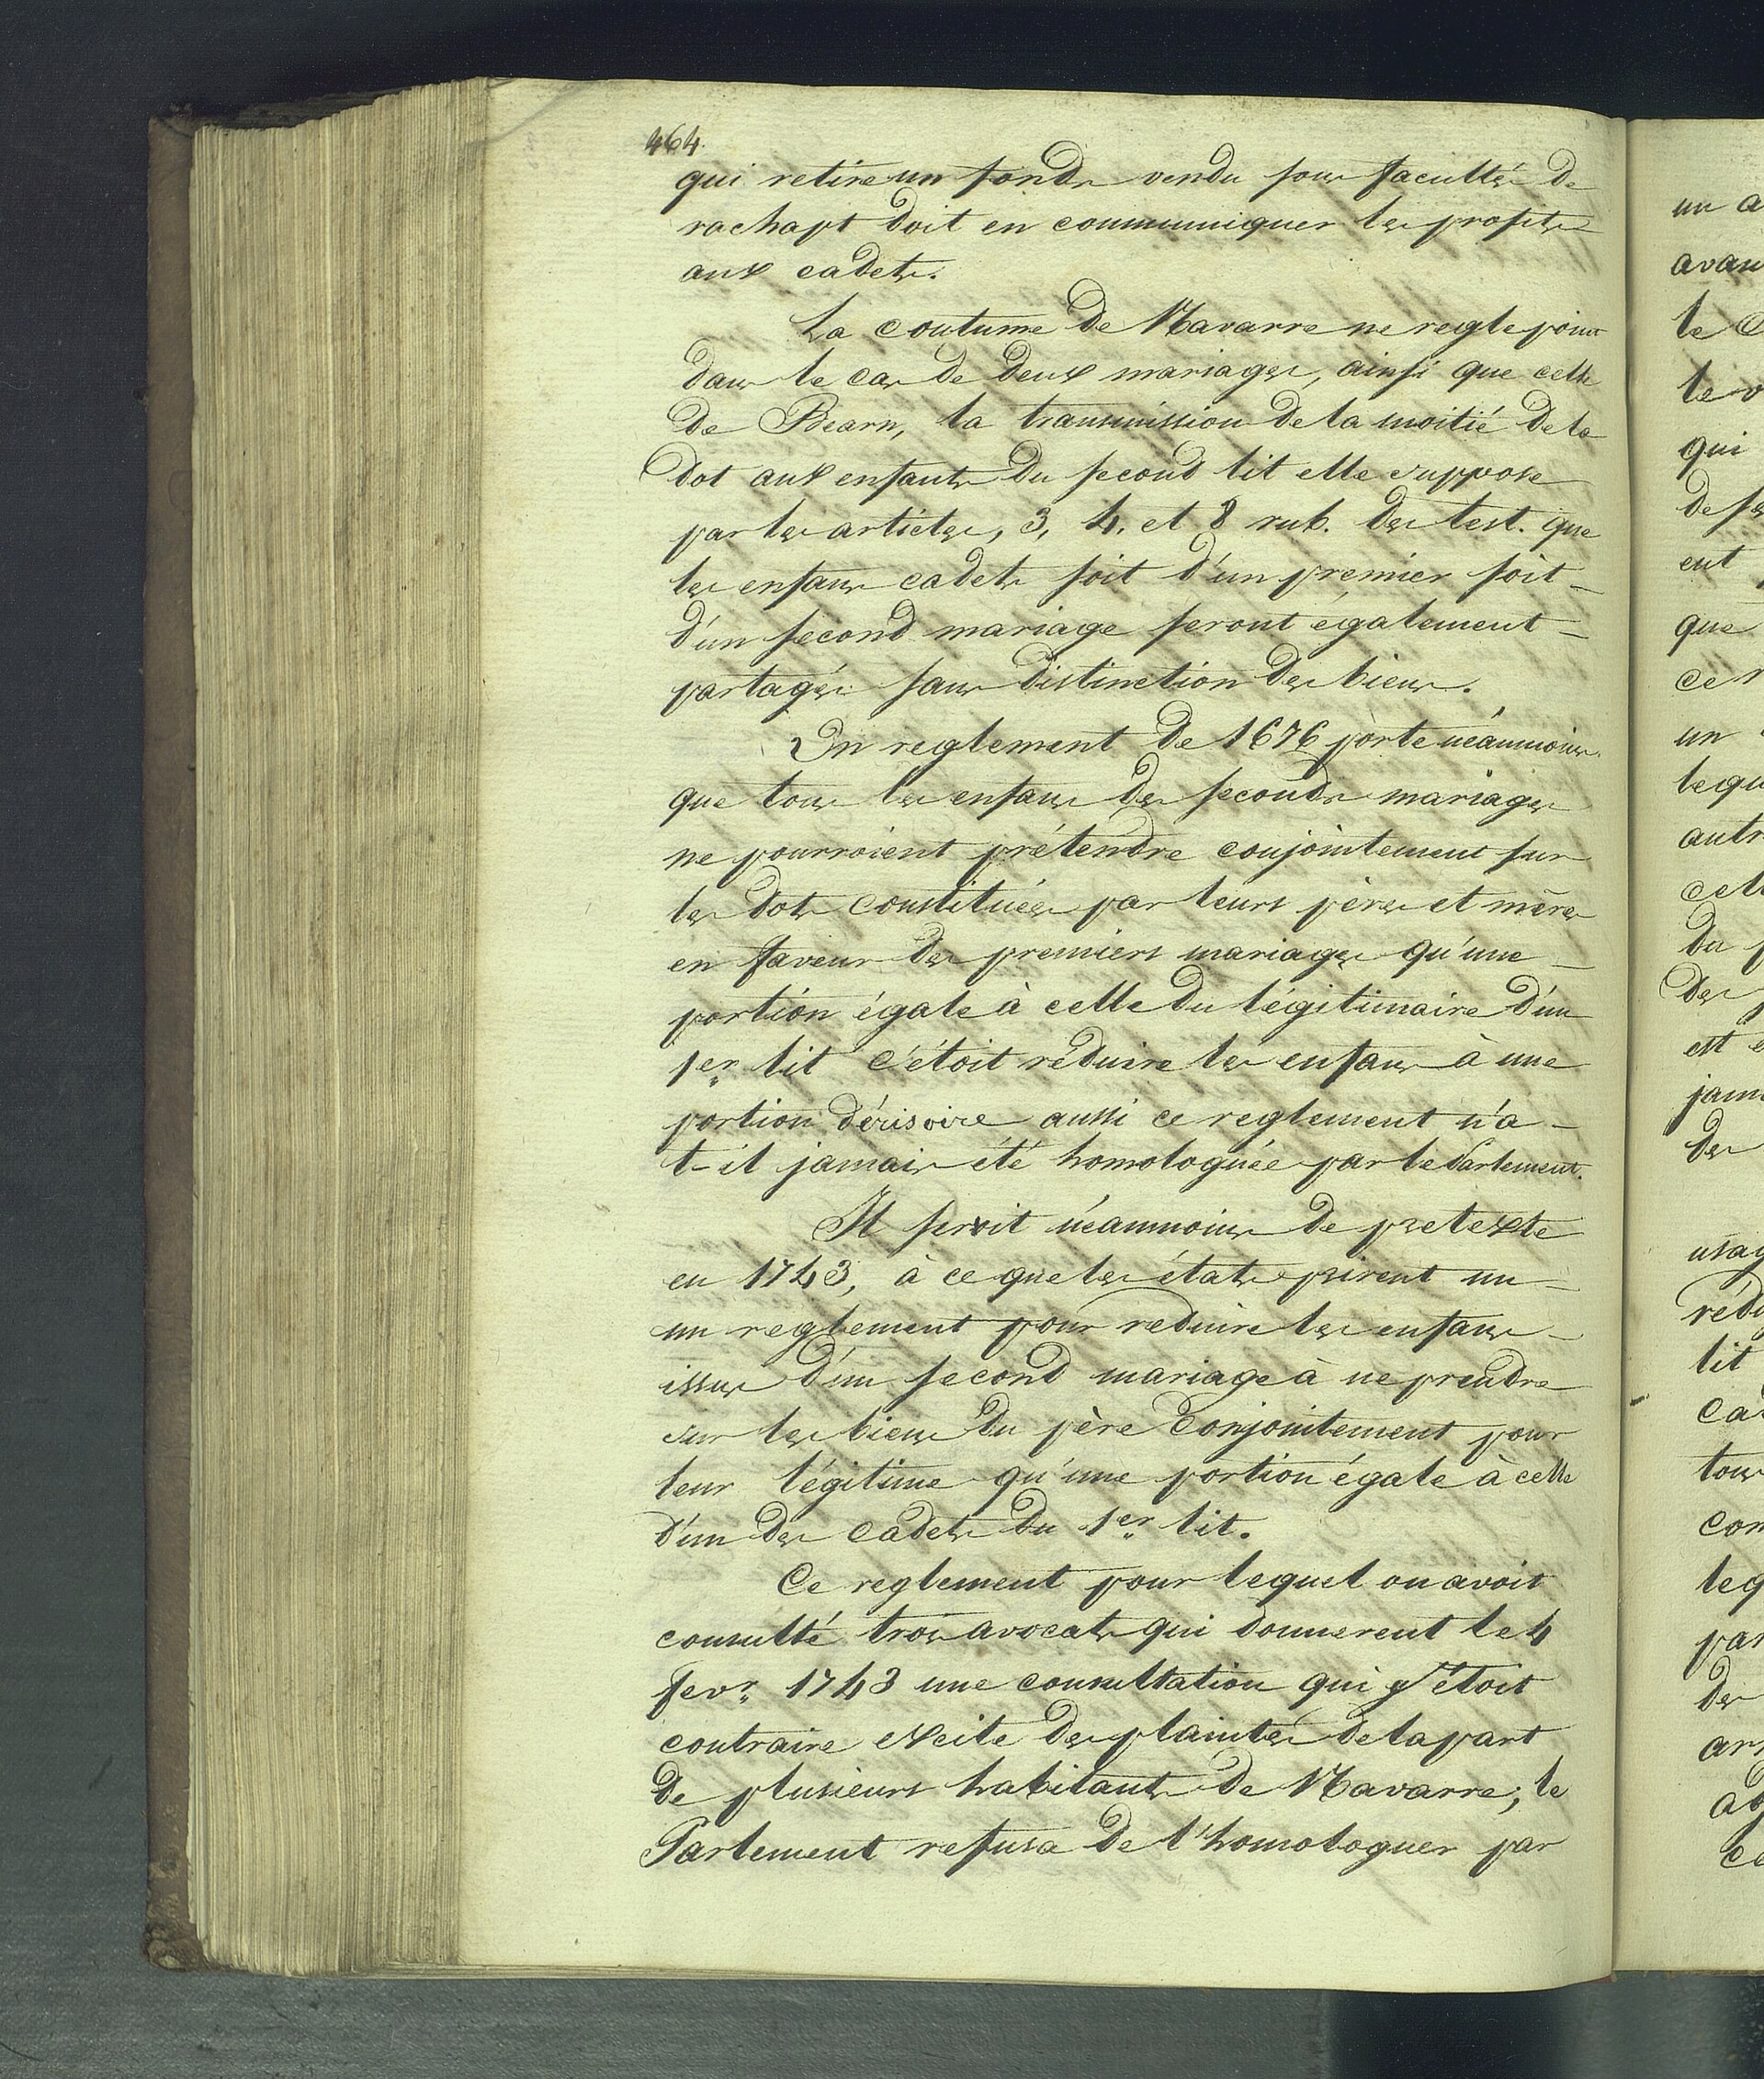 464.
qui retire un fonds vendu sous faculté de
rachapt doit en communiquer les profits
aux cadets.
La coutume de Navarre ne regle point
dans le cas de deux mariages, ainsi que celle
de Bearn, la transmission de la moitié de la
dot aux enfants du second lit elle suppose
par les articles, 3, 4. et 8 rub. des test. que
les enfans cadets soit d'un premier soit
d'un second mariage seront également
partagés sans distinction des biens.
Un reglement de 1676 porte néanmoins
que tous les enfans des seconds mariages
ne pourroient prétendre conjointement sur
les dots constituées par leurs pères et mères
en faveur des premiers mariages qu'une
portion égale à celle du légitimaire d'un
1er lit c'étoit réduire les enfans à une
portion dérisoire aussi ce reglement n'a-
t-il jamais été homologuée par le Parlement.
Il servoit néanmoins de pretexte
en 1743, à ce que les états prirent un
un reglement pour reduire les enfans
issus d'un second mariage à ne prendre
sur les biens du père conjointement pour
leur légitime qu'une portion égale à celle
d'un des cadets du 1er lit.
Ce reglement pour lequel on avoit
consulté trois avocats qui donnerent le 4
fevr. 1743 une consultation qui y étoit
contraire excite des plaintes de la part
de plusieurs habitants de Navarre; le
Parlement refusa de l'homologuer par
un a
avan
le
le v
qui
de se
ent
que
ce
un
lequ
autr
cel
du p
des
est
jam
des
usag
rédu
lit
ca
tous
con
leq
par
des
ar
ce